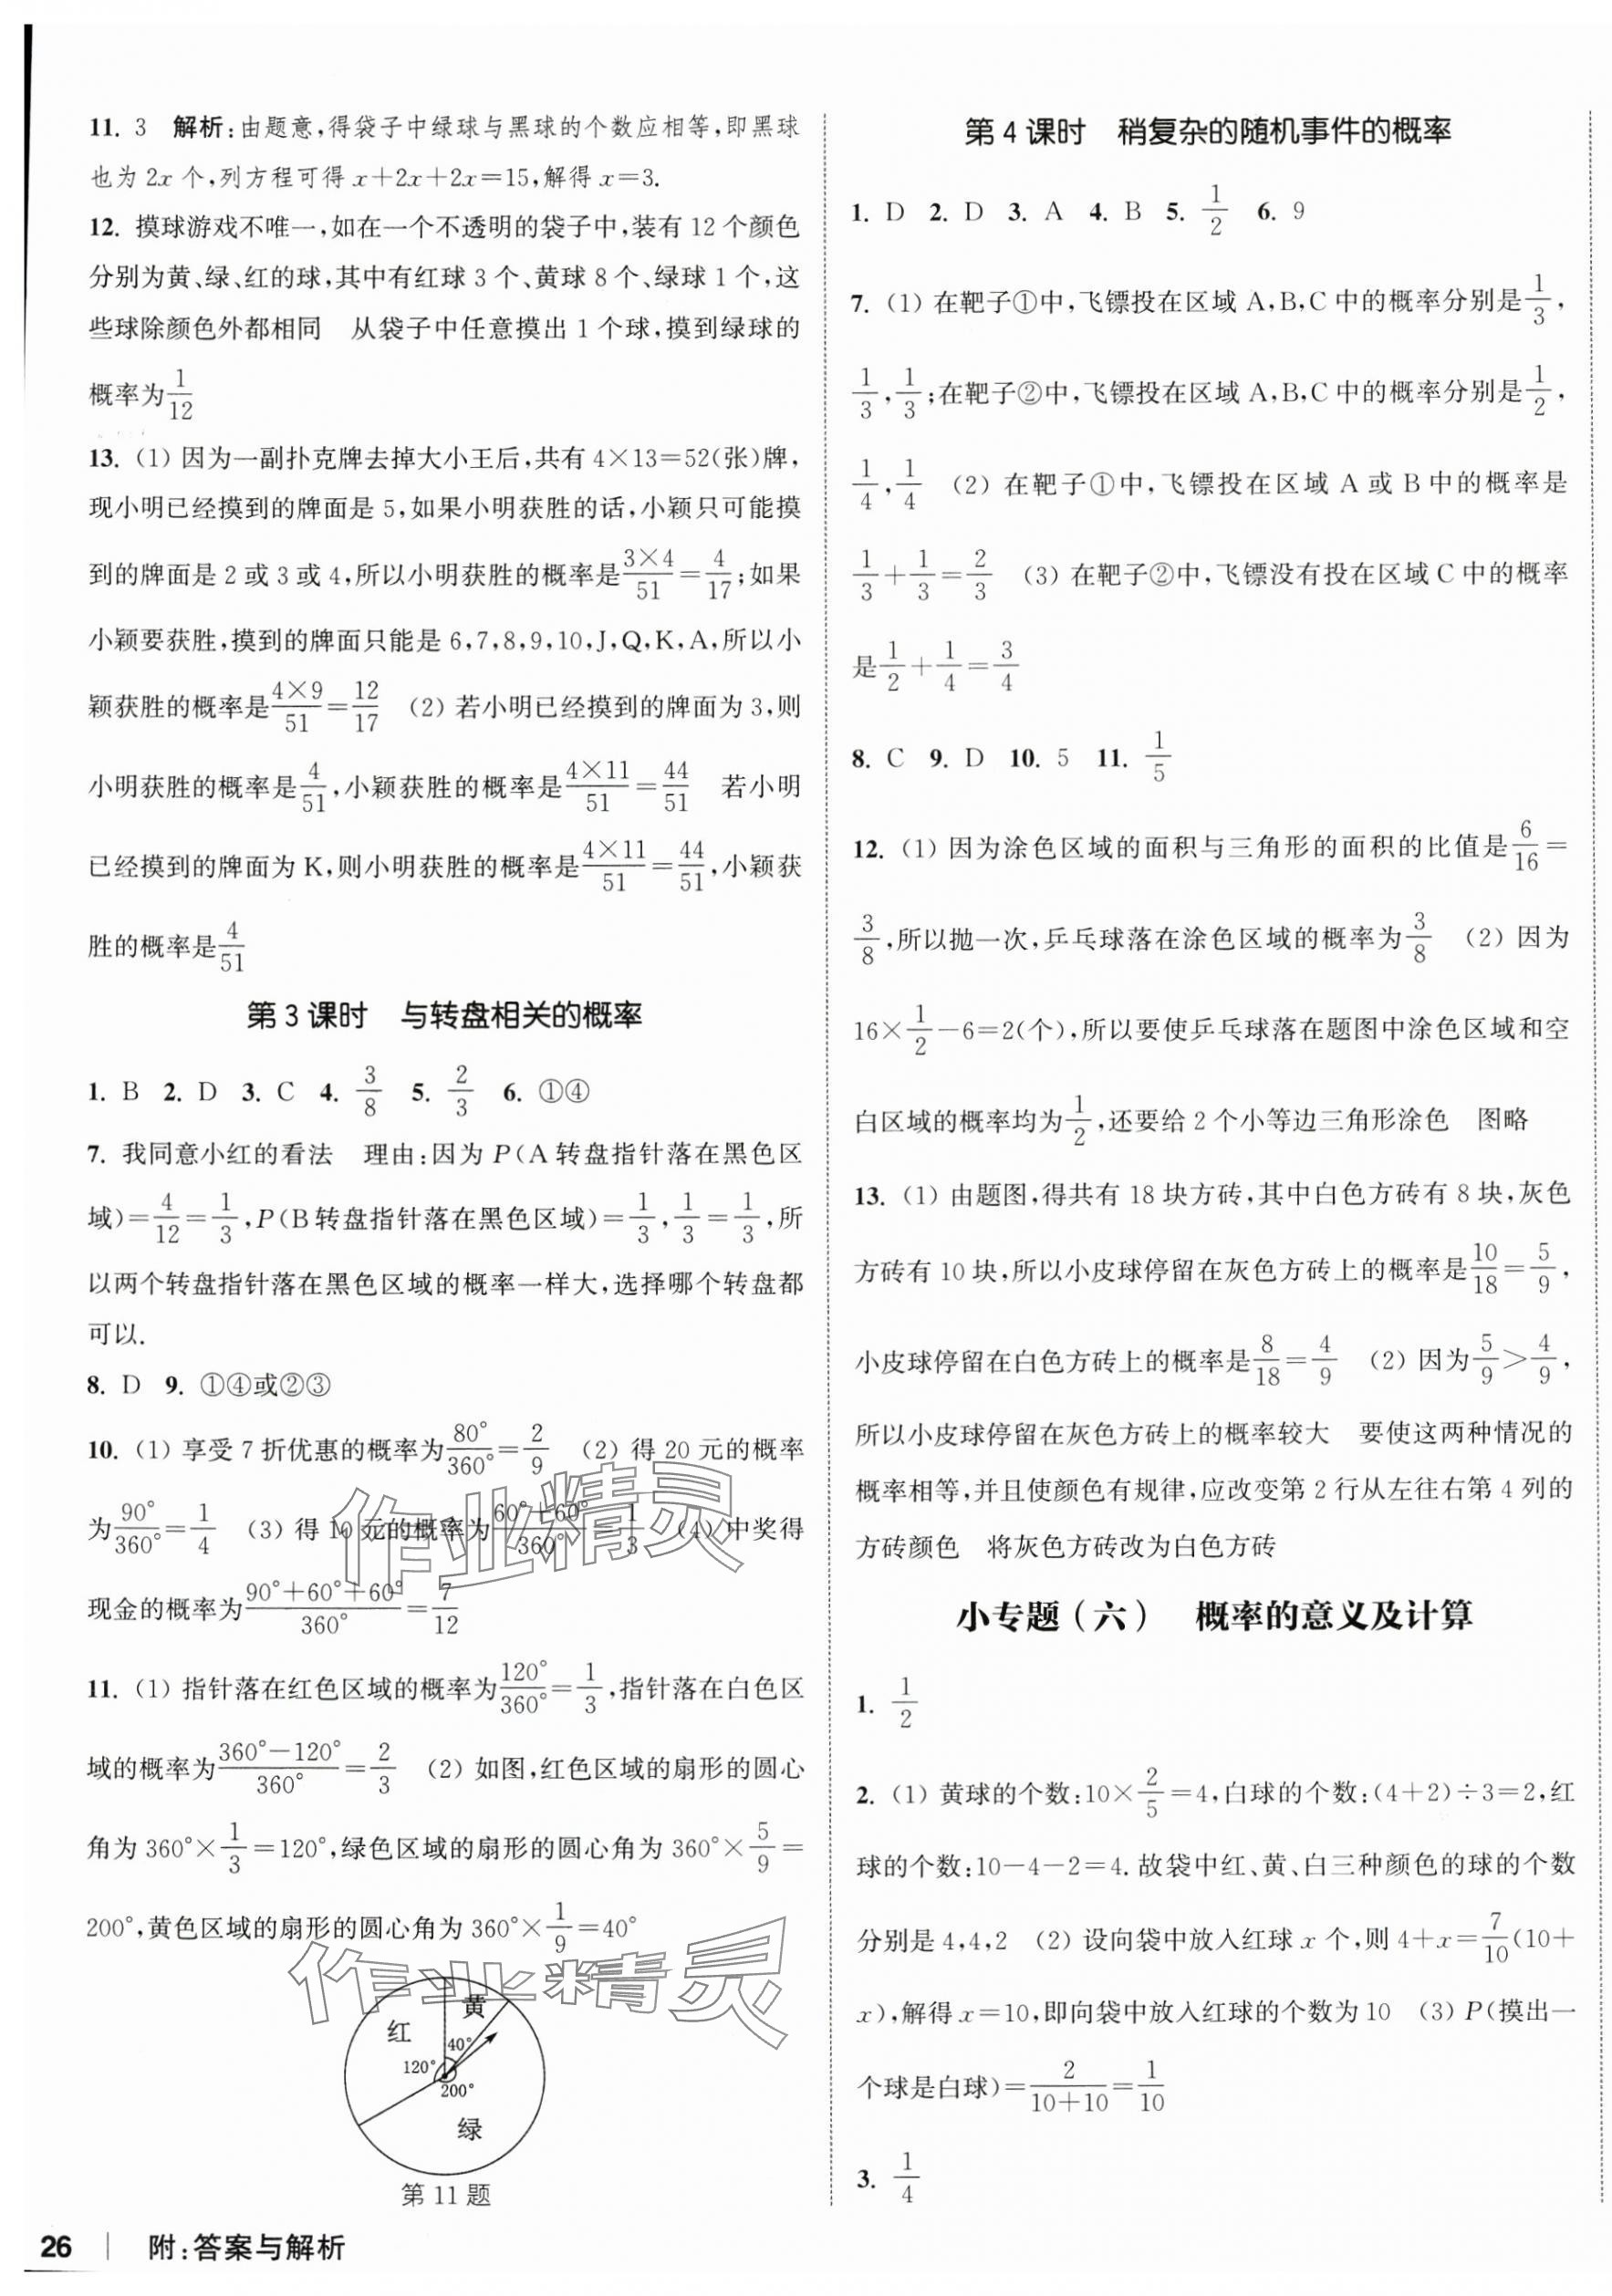 11. 3　解析:由题意,得袋子中绿球与黑球的个数应相等,即黑球
也为 2x 个,列方程可得 x+2x+2x=15,解得 x=3.
12. 摸球游戏不唯一,如在一个不透明的袋子中,装有 12 个颜色
分别为黄、绿、红的球,其中有红球 3 个、黄球 8 个、绿球 1 个,这
些球除颜色外都相同　从袋子中任意摸出 1 个球,摸到绿球的
概率为1/12
13. (1) 因为一副扑克牌去掉大小王后,共有 4×13=52(张)牌,
现小明已经摸到的牌面是 5,如果小明获胜的话,小颖只可能摸
到的牌面是 2 或 3 或 4,所以小明获胜的概率是(3×4)/51=4/17;如果
小颖要获胜,摸到的牌面只能是 6,7,8,9,10,J,Q,K,A,所以小
颖获胜的概率是(4×9)/51=12/17　(2) 若小明已经摸到的牌面为 3,则
小明获胜的概率是4/51,小颖获胜的概率是(4×11)/51=44/51　若小明
已经摸到的牌面为 K,则小明获胜的概率是(4×11)/51=44/51,小颖获
胜的概率是4/51
第 3 课时　与转盘相关的概率
1. B 2. D 3. C 4. 3/8 5. 2/3 6. ①④
7. 我同意小红的看法　理由:因为 P(A 转盘指针落在黑色区
域)=4/12=1/3,P(B 转盘指针落在黑色区域)=1/3,1/3=1/3,所
以两个转盘指针落在黑色区域的概率一样大,选择哪个转盘都
可以.
8. D 9. ①④或②③
10. (1) 享受 7 折优惠的概率为80°/360°=2/9　(2) 得 20 元的概率
为90°/360°=1/4　(3) 得 10 元的概率为(60°+60°)/360°=1/3　(4) 中奖得
现金的概率为(90°+60°+60°)/360°=7/12
11. (1) 指针落在红色区域的概率为120°/360°=1/3,指针落在白色区
域的概率为(360°-120°)/360°=2/3　(2) 如图,红色区域的扇形的圆心
角为 360°×1/3=120°,绿色区域的扇形的圆心角为 360°×5/9=
200°,黄色区域的扇形的圆心角为 360°×1/9=40°
黄
红
40°
120°
200°
绿
第 11 题
作业精灵
作业精灵
26 | 附:答案与解析
第 4 课时　稍复杂的随机事件的概率
1. D 2. D 3. A 4. B 5. 1/2 6. 9
7. (1) 在靶子①中,飞镖投在区域 A,B,C 中的概率分别是1/3,
1/3,1/3;在靶子②中,飞镖投在区域 A,B,C 中的概率分别是1/2,
1/4,1/4　(2) 在靶子①中,飞镖投在区域 A 或 B 中的概率是
1/3+1/3=2/3　(3) 在靶子②中,飞镖没有投在区域 C 中的概率
是1/2+1/4=3/4
8. C 9. D 10. 5 11. 1/5
12. (1) 因为涂色区域的面积与三角形的面积的比值是6/16=
3/8,所以抛一次,乒乓球落在涂色区域的概率为3/8　(2) 因为
16×1/2-6=2(个),所以要使乒乓球落在题图中涂色区域和空
白区域的概率均为1/2,还要给 2 个小等边三角形涂色　图略
13. (1) 由题图,得共有 18 块方砖,其中白色方砖有 8 块,灰色
方砖有 10 块,所以小皮球停留在灰色方砖上的概率是10/18=5/9,
小皮球停留在白色方砖上的概率是8/18=4/9　(2) 因为5/9>4/9,
所以小皮球停留在灰色方砖上的概率较大　要使这两种情况的
概率相等,并且使颜色有规律,应改变第 2 行从左往右第 4 列的
方砖颜色　将灰色方砖改为白色方砖
小专题(六)　概率的意义及计算
1. 1/2
2. (1) 黄球的个数:10×2/5=4,白球的个数:(4+2)÷3=2,红
球的个数:10-4-2=4.故袋中红、黄、白三种颜色的球的个数
分别是 4,4,2　(2) 设向袋中放入红球 x 个,则 4+x=7/10(10+
x),解得 x=10,即向袋中放入红球的个数为 10　(3) P(摸出一
个球是白球)=2/(10+10)=1/10
3. 1/4